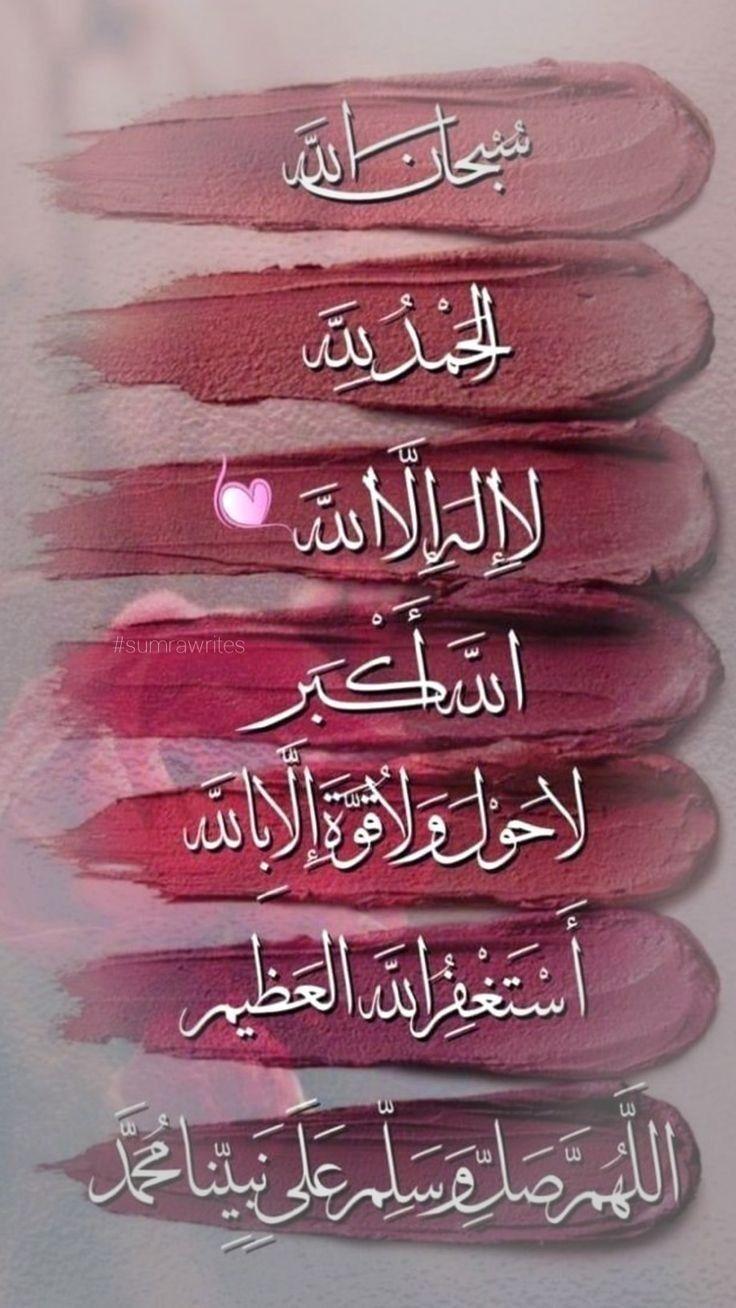 سُبْحَانَ اللَّه
الحَمْدُ لِلَّهِ
لَا إِلَهَ إِلَّا اللَّه
#sumrawrites
اللَّه أَكْبَر
لَا حَوْلَ وَلَا قُوَّةَ إِلَّا بِاللَّه
أَسْتَغْفِرُ اللَّه العَظِيم
اللَّهُمَّ صَلِّ وَسَلِّم عَلَى نَبِيِّنَا مُحَمَّد